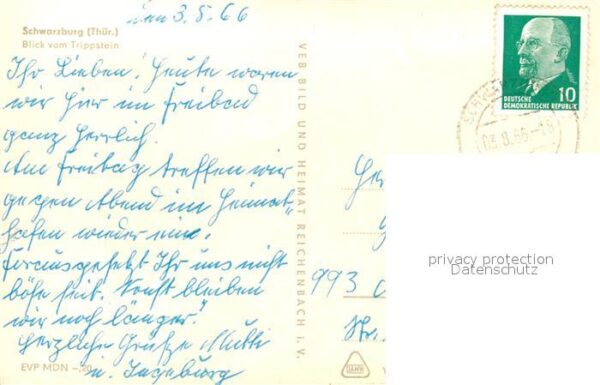 den 3.8.66
Schwarzburg (Thür.)
Blick vom Trippstein
Ihr Lieben! Heute waren
wir hier im Freibad
ganz herrlich.
Am Freitag treffen wir
gegen Abend im Heimat„
hafen wieder ein.
Forausgesetzt Ihr uns nicht
böse seit. Sonst bleiben
wir noch länger!
Herzliche Grüße Mutti
u. Ingeburg
EVP MDN –,20
VEB BILD UND HEIMAT REICHENBACH i. V.
10
DEUTSCHE
DEMOKRATISCHE REPUBLIK
03.8.66-18
993
Str.
privacy protection
Datenschutz